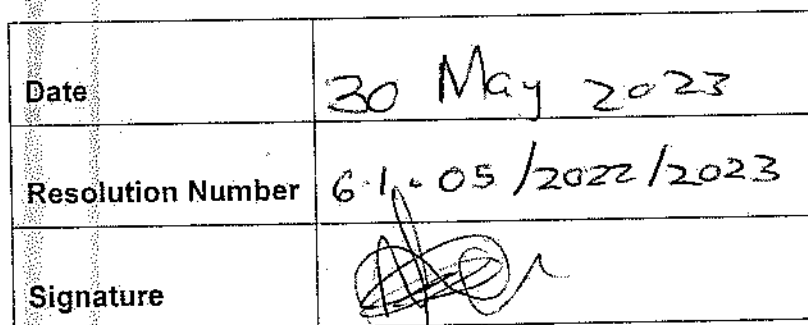 Date 30 May 2023
Resolution Number 6.1.05/2022/2023
Signature